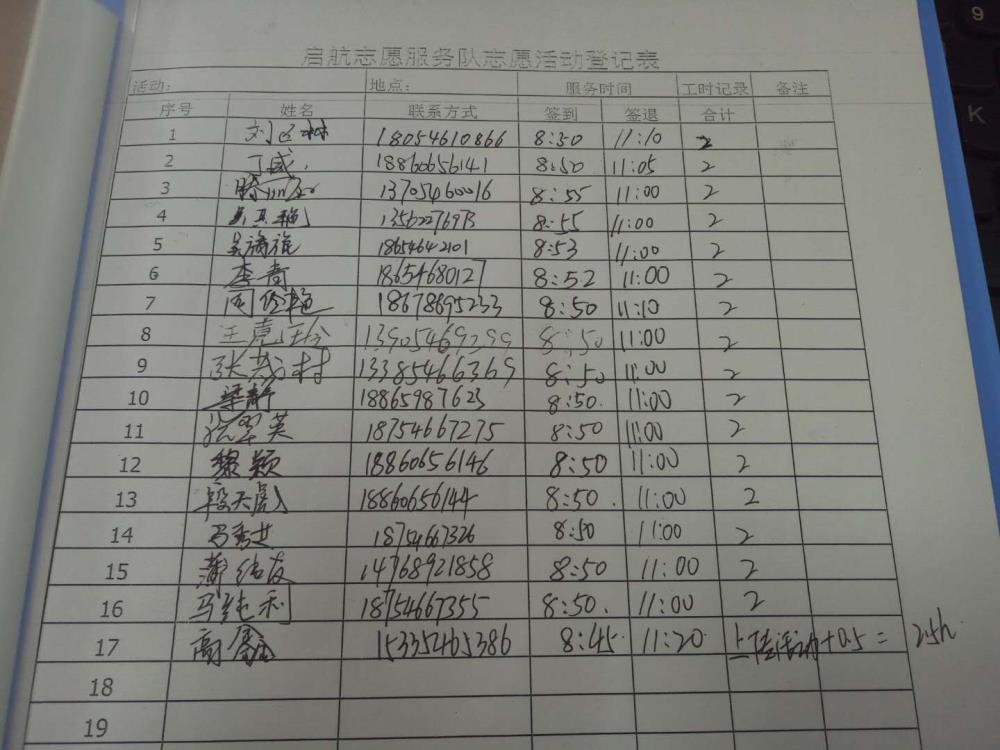 启航志愿服务队志愿活动登记表
活动: 地点: 服务时间 工时记录 备注
序号 姓名 联系方式 签到 签退 合计
1 18054610866 8:50 11:10 2
2 丁威 18860656141 8:50 11:05 2
3 13705460016 8:55 11:00 2
4 8:55 11:00 2
5 18654642101 8:53 11:00 2
6 李奇 18654680127 8:52 11:00 2
7 18678695233 8:50 11:10 2
8 王克玲 13905469299 8:50 11:00 2
9 张茂村 13385466369 8:50 11:00 2
10 梁静 18865987623 8:50 11:00 2
11 张翠英 18754667275 8:50 11:00 2
12 黎颖 18860656146 8:50 11:00 2
13 段天彪 18860656144 8:50 11:00 2
14 马秀芝 18754667326 8:50 11:00 2
15 14768921858 8:50 11:00 2
16 马纯利 18754667355 8:50 11:00 2
17 高 15335465386 8:45 11:20 上传活动+0.5= 2.5h
18
19
K
9